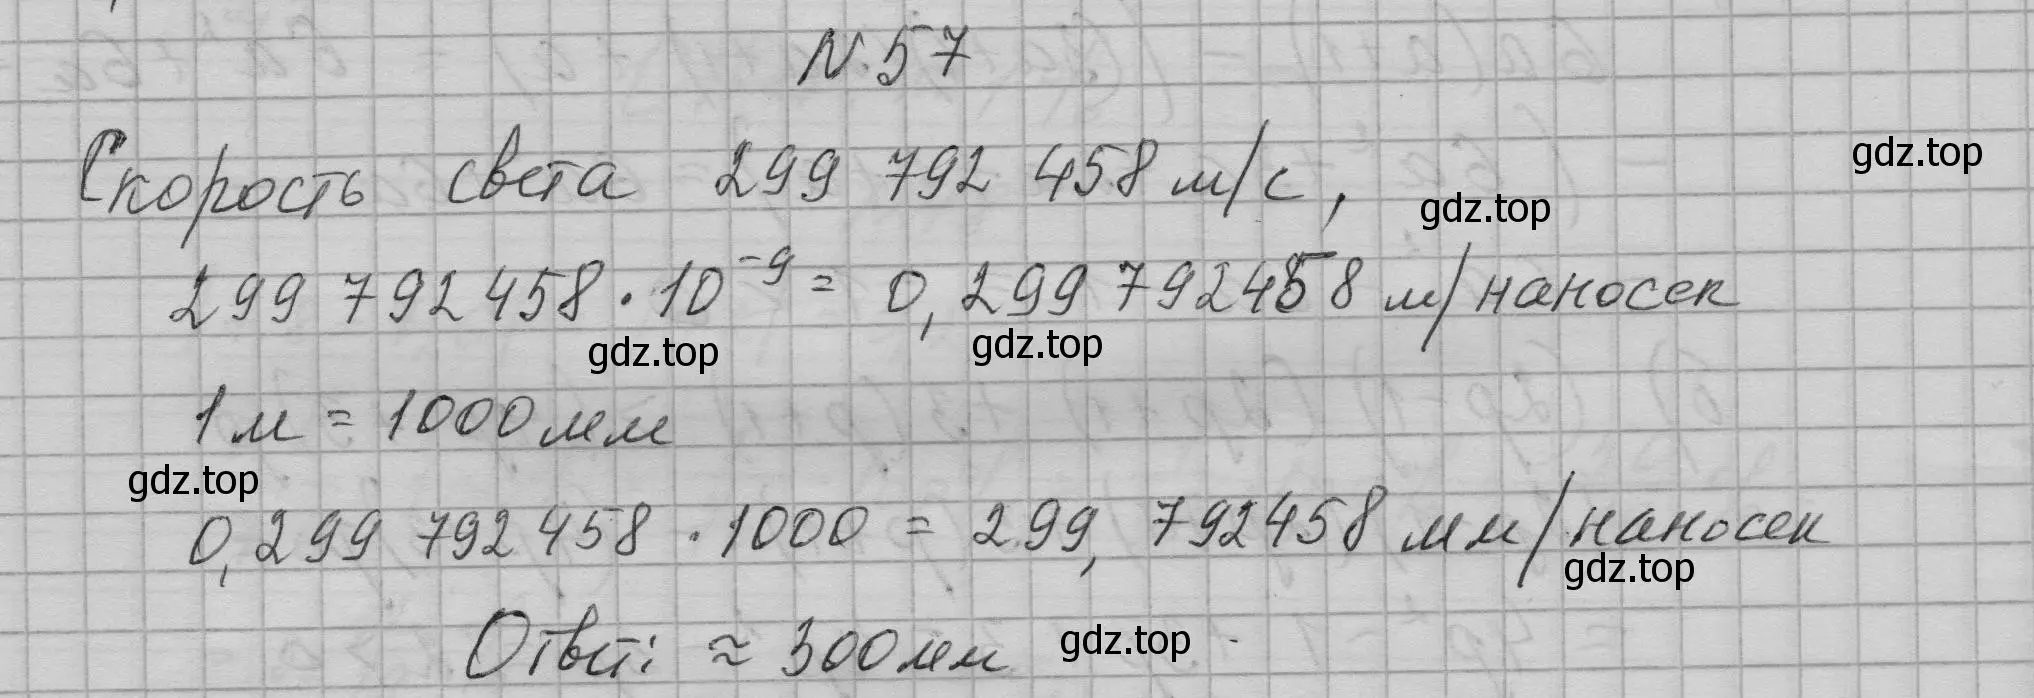 N.57
Скорость света 299 792 458 м/с,
gdz.top
gdz.top
299 792 458 · 10⁻⁹ = 0,299 792458 м/наносек
gdz.top
gdz.top
1 м = 1000 мм
gdz.top
0,299 792 458 · 1000 = 299, 792458 мм/наносек
gdz.top
Ответ: ≈ 300 мм
gdz.top